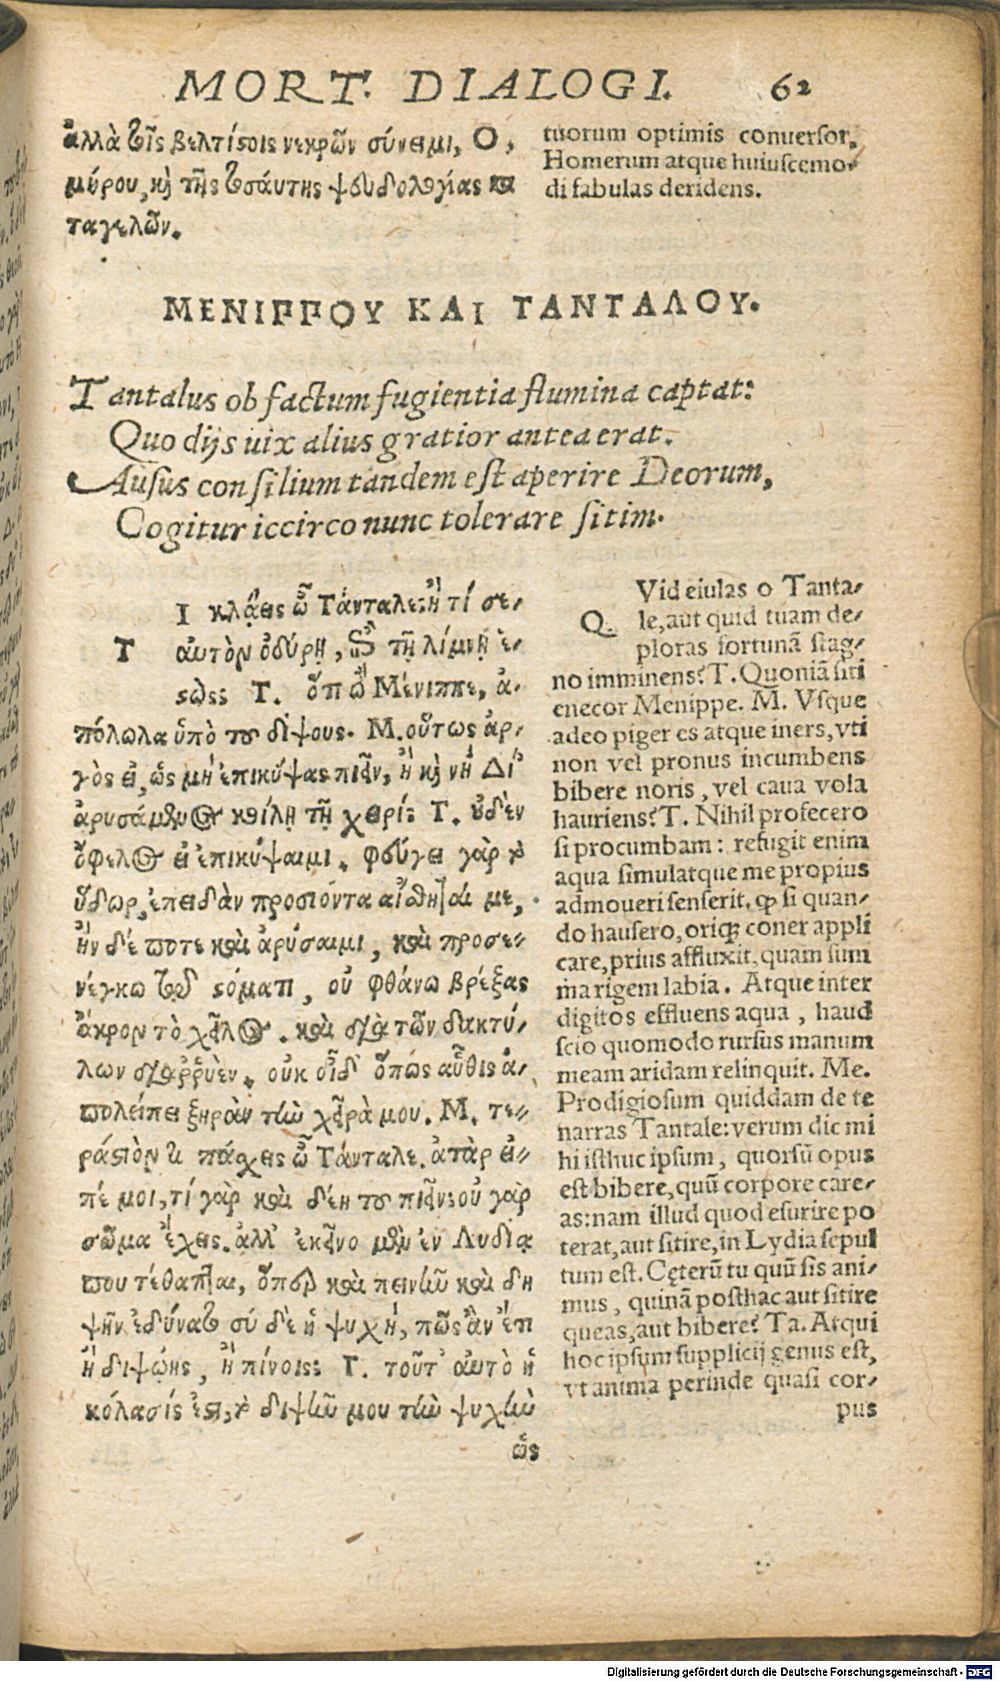 MORT. DIALOGI. 62
ἀλλὰ τοῖς βελτίστοις νεκρῶν σύνειμι, Ο,
μήρου, καὶ τῆς τοσαύτης ψευδολογίας κα
ταγελῶν.
tuorum optimis conuersor,
Homerum atque huiuscemo-
di fabulas deridens.
ΜΕΝΙΠΠΟΥ ΚΑΙ ΤΑΝΤΑΛΟΥ.
Tantalus ob factum fugientia flumina captat:
Quo dijs uix alius gratior antea erat.
Ausus consilium tandem est aperire Deorum,
Cogitur iccirco nunc tolerare sitim.
Τ Ι κλάεις ὦ Τάνταλε; ἢ τί σε-
αυτὸν ὀδύρῃ, ἐπὶ τῇ λίμνῃ ἑ-
στώς; Τ. ὅτι ὦ Μένιππε, ἀ-
πόλωλα ὑπὸ τοῦ δίψους. Μ. οὕτως ἀρ-
γὸς εἶ, ὡς μὴ ἐπικύψας πιεῖν, ἢ καὶ νὴ Δί'
ἀρυσάμενος κοίλῃ τῇ χειρί; Τ. οὐδὲν
ὄφελος εἰ ἐπικύψαιμι. φεύγει γὰρ τὸ
ὕδωρ, ἐπειδὰν προσιόντα αἴσθηταί με,
ἢν δέ ποτε καὶ ἀρύσαιμι, καὶ προσε-
νέγκω τῷ στόματι, οὐ φθάνω βρέξας
ἄκρον τὸ χεῖλος. καὶ διὰ τῶν δακτύ-
λων διαρρυὲν. οὐκ οἶδ' ὅπως αὖθις ἀ-
πολείπει ξηρὰν τὴν χεῖρά μου. Μ. τε-
ράστιόν τι πάσχεις ὦ Τάνταλε. ἀτὰρ εἰ-
πέ μοι, τί γὰρ καὶ δέῃ τοῦ πιεῖν; οὐ γὰρ
σῶμα ἔχεις. ἀλλ' ἐκεῖνο μὲν ἐν Λυδίᾳ
που τέθαπται, ὅπερ καὶ πεινῆν καὶ δι
ψῆν ἐδύνατο σὺ δὲ ἡ ψυχή, πῶς ἂν ἔτι
ἢ διψῴης, ἢ πίνοις; Τ. τοῦτ' αὐτὸ ἡ
κόλασίς ἐστι, τὸ διψῆν μου τὴν ψυχὴν
ὡς
Q Vid eiulas o Tanta-
le, aut quid tuam de-
ploras fortunã stag-
no imminens? T. Quoniã siti
enecor Menippe. M. Vsque
adeo piger es atque iners, vti
non vel pronus incumbens
bibere noris, vel caua vola
hauriens? T. Nihil profecero
si procumbam: refugit enim
aqua simulatque me propius
admoueri senserit. ꝙ si quan-
do hausero, oriq; coner appli
care, prius affluxit, quam sum
ma rigem labia. Atque inter
digitos effluens aqua, haud
scio quomodo rursus manum
meam aridam relinquit. Me.
Prodigiosum quiddam de te
narras Tantale: verum dic mi
hi isthuc ipsum, quorsũ opus
est bibere, quũ corpore care-
as: nam illud quod esurire po
terat, aut sitire, in Lydia sepul
tum est. Cęterũ tu quũ sis ani-
mus, quinã posthac aut sitire
queas, aut bibere? Ta. Atqui
hoc ipsum supplicij genus est,
vt anima perinde quasi cor-
pus
Digitalisierung gefördert durch die Deutsche Forschungsgemeinschaft - DFG